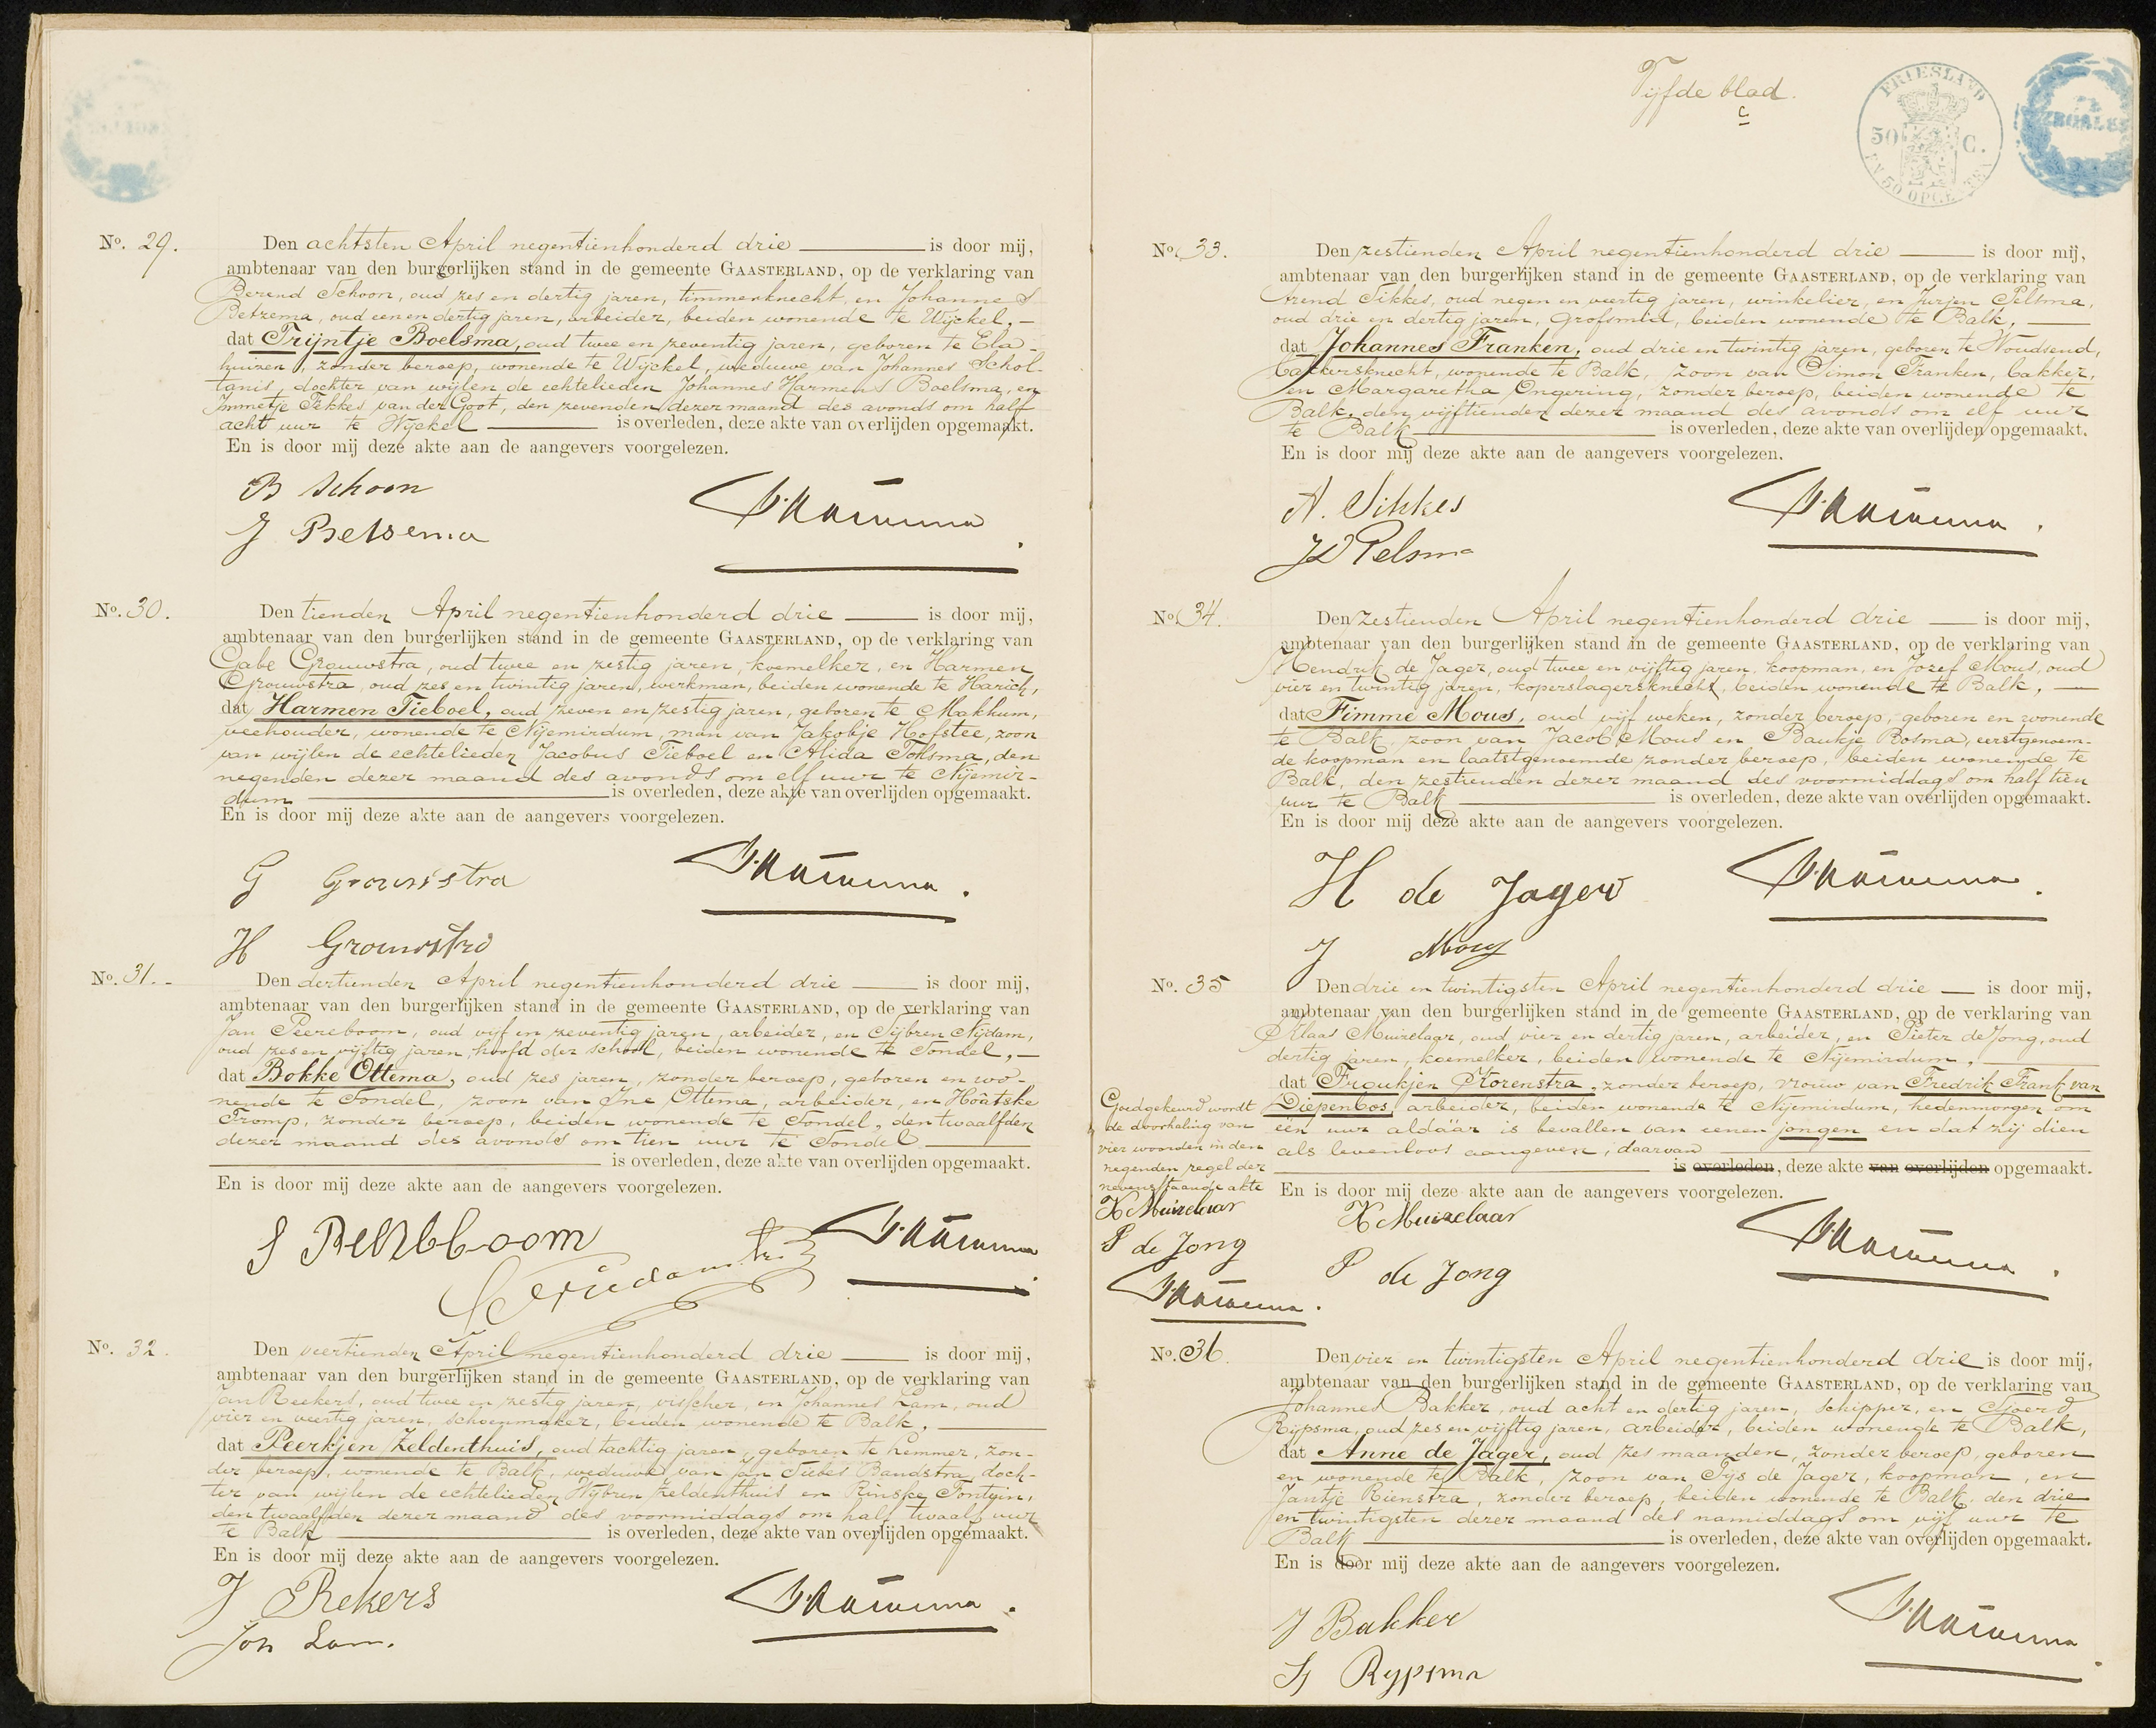 No. 29.
Den achtsten April negentienhonderd drie is door mij,
ambtenaar van den burgerlijken stand in de gemeente GAASTERLAND, op de verklaring van
Berend Schoon, oud zes en dertig jaren, timmerknecht, en Johannes
Betzema, oud een en dertig jaren, arbeider, beiden wonende te Wijckel, –
dat Trijntje Boelsma, oud twee en zeventig jaren, geboren te Ela-
huizen, zonder beroep, wonende te Wijckel, weduwe van Johannes Schol-
tanis, dochter van wijlen de echtelieden Johannes Harmens Boelsma, en
Immetje Fekkes van der Goot, den zevenden dezer maand des avonds om half
acht uur te Wijckel is overleden, deze akte van overlijden opgemaakt.
En is door mij deze akte aan de aangevers voorgelezen.
B Schoon
J Betsema
No. 30.
Den tienden April negentienhonderd drie is door mij,
ambtenaar van den burgerlijken stand in de gemeente GAASTERLAND, op de verklaring van
Gabe Grouwstra, oud twee en zestig jaren, koemelker, en Harmen
Grouwstra, oud zes en twintig jaren, werkman, beiden wonende te Harich,
dat Harmen Tieboel, oud zeven en zestig jaren, geboren te Makkum,
veehouder, wonende te Nijemirdum, man van Jakobje Hofstee, zoon
van wijlen de echtelieden Jacobus Tieboel en Alida Tolsma, den
negenden dezer maand des avonds om elf uur te Nijemir-
dum is overleden, deze akte van overlijden opgemaakt.
En is door mij deze akte aan de aangevers voorgelezen.
G Grouwstra
H Grouwstra
No. 31.
Den dertienden April negentienhonderd drie is door mij,
ambtenaar van den burgerlijken stand in de gemeente GAASTERLAND, op de verklaring van
Jan Peereboom, oud vijf en zeventig jaren, arbeider, en Sijbren Nijdam,
oud zes en vijftig jaren, hoofd der school, beiden wonende te Sondel, –
dat Bokke Ottema, oud zes jaren, zonder beroep, geboren en wo-
nende te Sondel, zoon van Ine Ottema, arbeider, en Hoatske
Tromp, zonder beroep, beiden wonende te Sondel, den twaalfden
dezer maand des avonds om tien uur te Sondel
is overleden, deze akte van overlijden opgemaakt.
En is door mij deze akte aan de aangevers voorgelezen.
No. 32.
Den veertienden April negentienhonderd drie is door mij,
ambtenaar van den burgerlijken stand in de gemeente GAASTERLAND, op de verklaring van
Jan Reekers, oud twee en zestig jaren, visscher, en Johannes Lam, oud
vier en veertig jaren, schoenmaker, beiden wonende te Balk,
dat Peerkjen Zeldenthuis, oud tachtig jaren, geboren te Lemmer, zon-
der beroep, wonende te Balk, weduwe van Jan Siebes Bandstra, doch-
ter van wijlen de echtelieden Wijbren Zeldenthuis en Rinske Fontein,
den twaalfden dezer maand des voormiddags om half twaalf uur
te Balk is overleden, deze akte van overlijden opgemaakt.
En is door mij deze akte aan de aangevers voorgelezen.
J Rekers
Joh Lam.
Vijfde blad.
c
FRIESLAND
50 C.
EN 50 OPCENTEN
No. 33.
Den zestienden April negentienhonderd drie is door mij,
ambtenaar van den burgerlijken stand in de gemeente GAASTERLAND, op de verklaring van
Arend Sikkes, oud negen en veertig jaren, winkelier, en Jurjen Pelsma,
oud drie en dertig jaren, grofsmid, beiden wonende te Balk,
dat Johannes Franken, oud drie en twintig jaren, geboren te Woudsend,
bakkersknecht, wonende te Balk, zoon van Simon Franken, bakker,
en Margaretha Ongering, zonder beroep, beiden wonende te
Balk, den vijftienden dezer maand des avonds om elf uur
te Balk is overleden, deze akte van overlijden opgemaakt.
En is door mij deze akte aan de aangevers voorgelezen.
A. Sikkes
J Pelsma
No. 34.
Den zestienden April negentienhonderd drie is door mij,
ambtenaar van den burgerlijken stand in de gemeente GAASTERLAND, op de verklaring van
Hendrik de Jager, oud twee en vijftig jaren, koopman, en Jozef Mous, oud
vier en twintig jaren, koperslagersknecht, beiden wonende te Balk, –
dat Fimme Mous, oud vijf weken, zonder beroep, geboren en wonende
te Balk, zoon van Jacob Mous en Baukje Bosma, eerstgenoem-
de koopman en laatstgenoemde zonder beroep, beiden wonende te
Balk, den zestienden dezer maand des voormiddags om half tien
uur te Balk is overleden, deze akte van overlijden opgemaakt.
En is door mij deze akte aan de aangevers voorgelezen.
H de Jager
J Mous
No. 35
Den drie en twintigsten April negentienhonderd drie is door mij,
ambtenaar van den burgerlijken stand in de gemeente GAASTERLAND, op de verklaring van
Klaas Muizelaar, oud vier en dertig jaren, arbeider, en Pieter de Jong, oud
dertig jaren, koemelker, beiden wonende te Nijemirdum,
dat Froukjen Korenstra, zonder beroep, vrouw van Fredrik Frank van
Diepenbos, arbeider, beiden wonende te Nijemirdum, hedenmorgen om
een uur aldáár is bevallen van eenen jongen en dat zij dien
als levenloos aangeven, daarvan
is overleden, deze akte van overlijden opgemaakt.
En is door mij deze akte aan de aangevers voorgelezen.
Goedgekeurd wordt
de doorhaling van
vier woorden in den
negenden regel der
nevenstaande akte
K Muizelaar
P de Jong
K Muizelaar
P de Jong
No. 36.
Den vier en twintigsten April negentienhonderd drie is door mij,
ambtenaar van den burgerlijken stand in de gemeente GAASTERLAND, op de verklaring van
Johannes Bakker, oud acht en dertig jaren, schipper, en Sjoerd
Rijpsma, oud zes en vijftig jaren, arbeider, beiden wonende te Balk,
dat Anne de Jager, oud zes maanden, zonder beroep, geboren
en wonende te Balk, zoon van Sijs de Jager, koopman, en
Jantje Rienstra, zonder beroep, beiden wonende te Balk, den drie
en twintigsten dezer maand des namiddags om vijf uur te
Balk is overleden, deze akte van overlijden opgemaakt.
En is door mij deze akte aan de aangevers voorgelezen.
J Bakker
S Rypsma